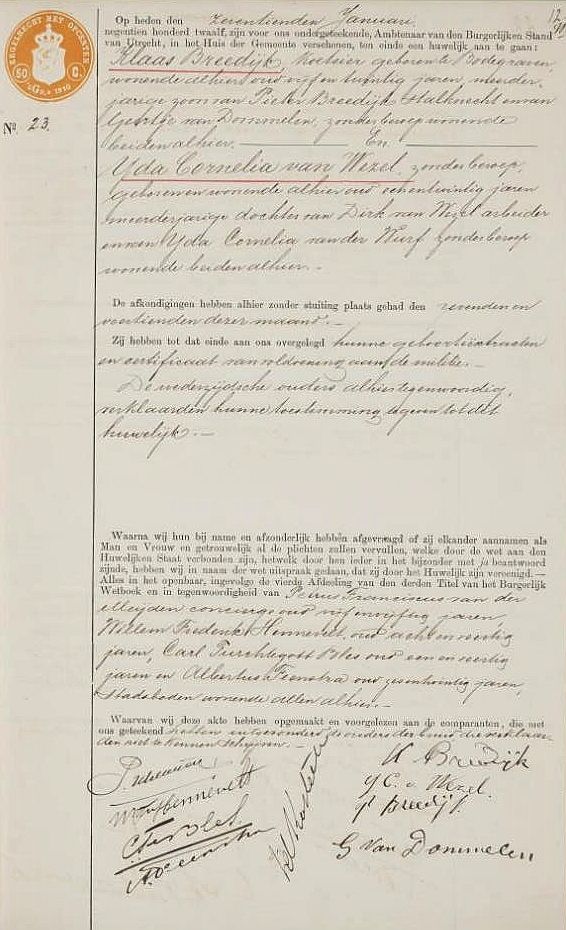 ZEGELRECHT MET OPCENTEN
50 C.
12
Op heden den zeventienden Januari
negentien honderd twaalf, zijn voor ons ondergeteekende, Ambtenaar van den Burgerlijken Stand
van Utrecht, in het Huis der Gemeente verschenen, ten einde een huwelijk aan te gaan:
Klaas Breedijk, koetsier, geboren te Bodegraven,
wonende alhier oud vijf en twintig jaren, meerder-
jarige zoon van Pieter Breedijk, stalknecht en van
Geertje van Dommelen, zonder beroep wonende
beiden alhier. En
No. 23.
Yda Cornelia van Wezel, zonder beroep,
geboren en wonende alhier oud acht en twintig jaren
meerderjarige dochter van Dirk van Wezel arbeider
en van Yda Cornelia van der Wurf zonder beroep
wonende beiden alhier.-
De afkondigingen hebben alhier zonder stuiting plaats gehad den zevenden en
veertienden dezer maand.-
Zij hebben tot dat einde aan ons overgelegd hunne geboorteextracten
en certificaat van voldoening aan de militie.-
De wederzijdsche ouders alhier tegenwoordig,
verklaarden hunne toestemming te geven tot dit
huwelijk.-
Waarna wij hun bij name en afzonderlijk hebben afgevraagd of zij elkander aannamen als
Man en Vrouw en getrouwelijk al de plichten zullen vervullen, welke door de wet aan den
Huwelijken Staat verbonden zijn, hetwelk door hen ieder in het bijzonder met ja beantwoord
zijnde, hebben wij in naam der wet uitspraak gedaan, dat zij door het Huwelijk zijn vereenigd.—
Alles in het openbaar, ingevolge de vierde Afdeeling van den derden Titel van het Burgerlijk
Wetboek en in tegenwoordigheid van Petrus Franciscus van der
Meijden concierge oud vijf en vijftig jaren,
Willem Frederik Hennevelt, oud acht en veertig
jaren, Carl oud een en veertig
jaren en Albertus Feenstra oud zes en twintig jaren,
stadsboden wonende allen alhier.-
Waarvan wij deze akte hebben opgemaakt en voorgelezen aan de comparanten, die met
ons geteekend hebben uitgezonderd de ouders der bruid die verklaar-
den niet te kunnen schrijven.-
K Breedijk
Y C. v Wezel.
P Breedijk
G Van Dommelen